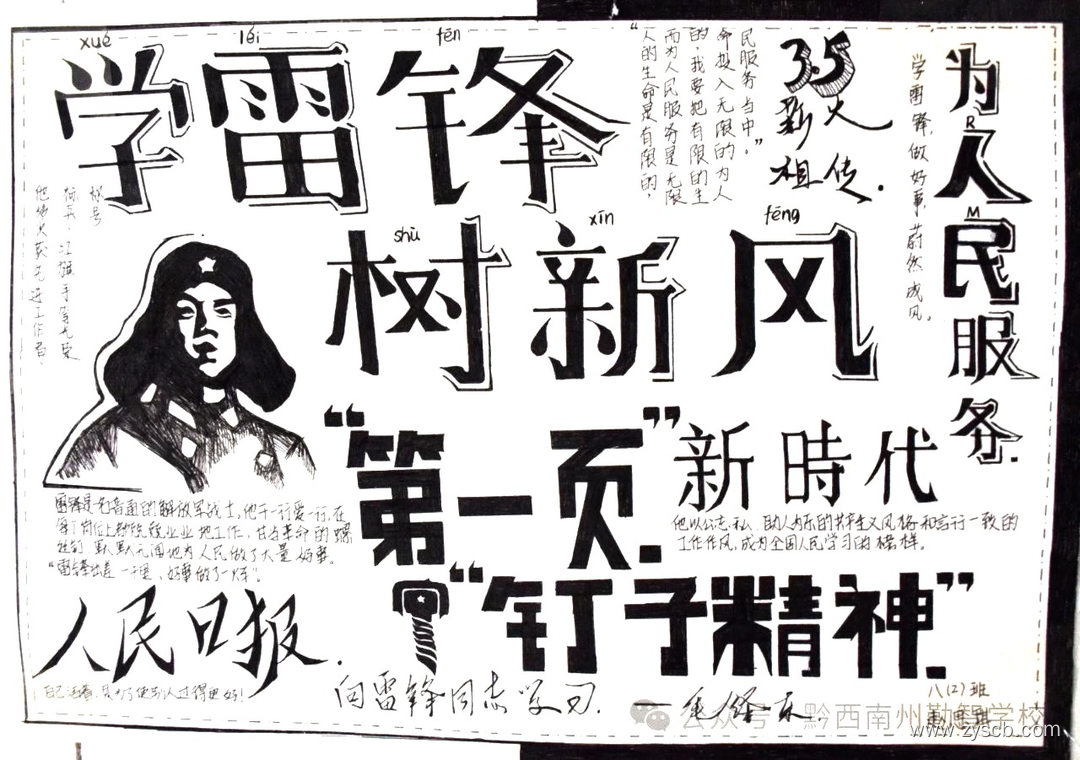 xué léi fēn
学雷锋
“人的生命是有限的，
而为人民服务是无限
的，我要把有限的生
命投入无限的为人
民服务当中。”
3.5
薪火
相传.
为
R
人
M
民
服
务.
学雷锋，做好事，蔚然成风。
标号
标兵，红旗手等光荣
shù xīn fēng
树新风
“第一页”.
新時代
雷锋是名普通的解放军战士，他干一行爱一行，在
每个岗位上都兢兢业业地工作，甘当革命的螺
丝钉，默默无闻地为人民做了大量好事。
“雷锋出差一千里，好事做了一火车”。
他以公忘私、助人为乐的共产主义风格和言行一致的
工作作风，成为全国人民学习的榜样。
“钉子精神”.
人民日报.
自己活着，只为了使别人过得更好！
向雷锋同志学习. 一毛泽东.
八(2)班
公众号·黔西南州勤智学校
www.zyscb.com